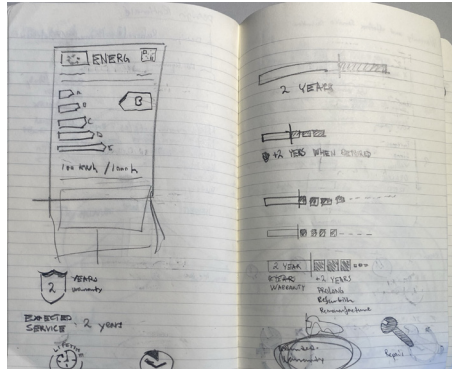 ENERG
A
B
B
C
D
E
100 kWh / 1000 h
2
YEARS
Warranty
EXPECTED
SERVICE
2 years
LIFETIME
2 YEARS
+2 YERS WHEN RETURED
2 YEAR
WARRANTY
+2 YEARS
Refurbish
Remanufacture
Warranty
Repair